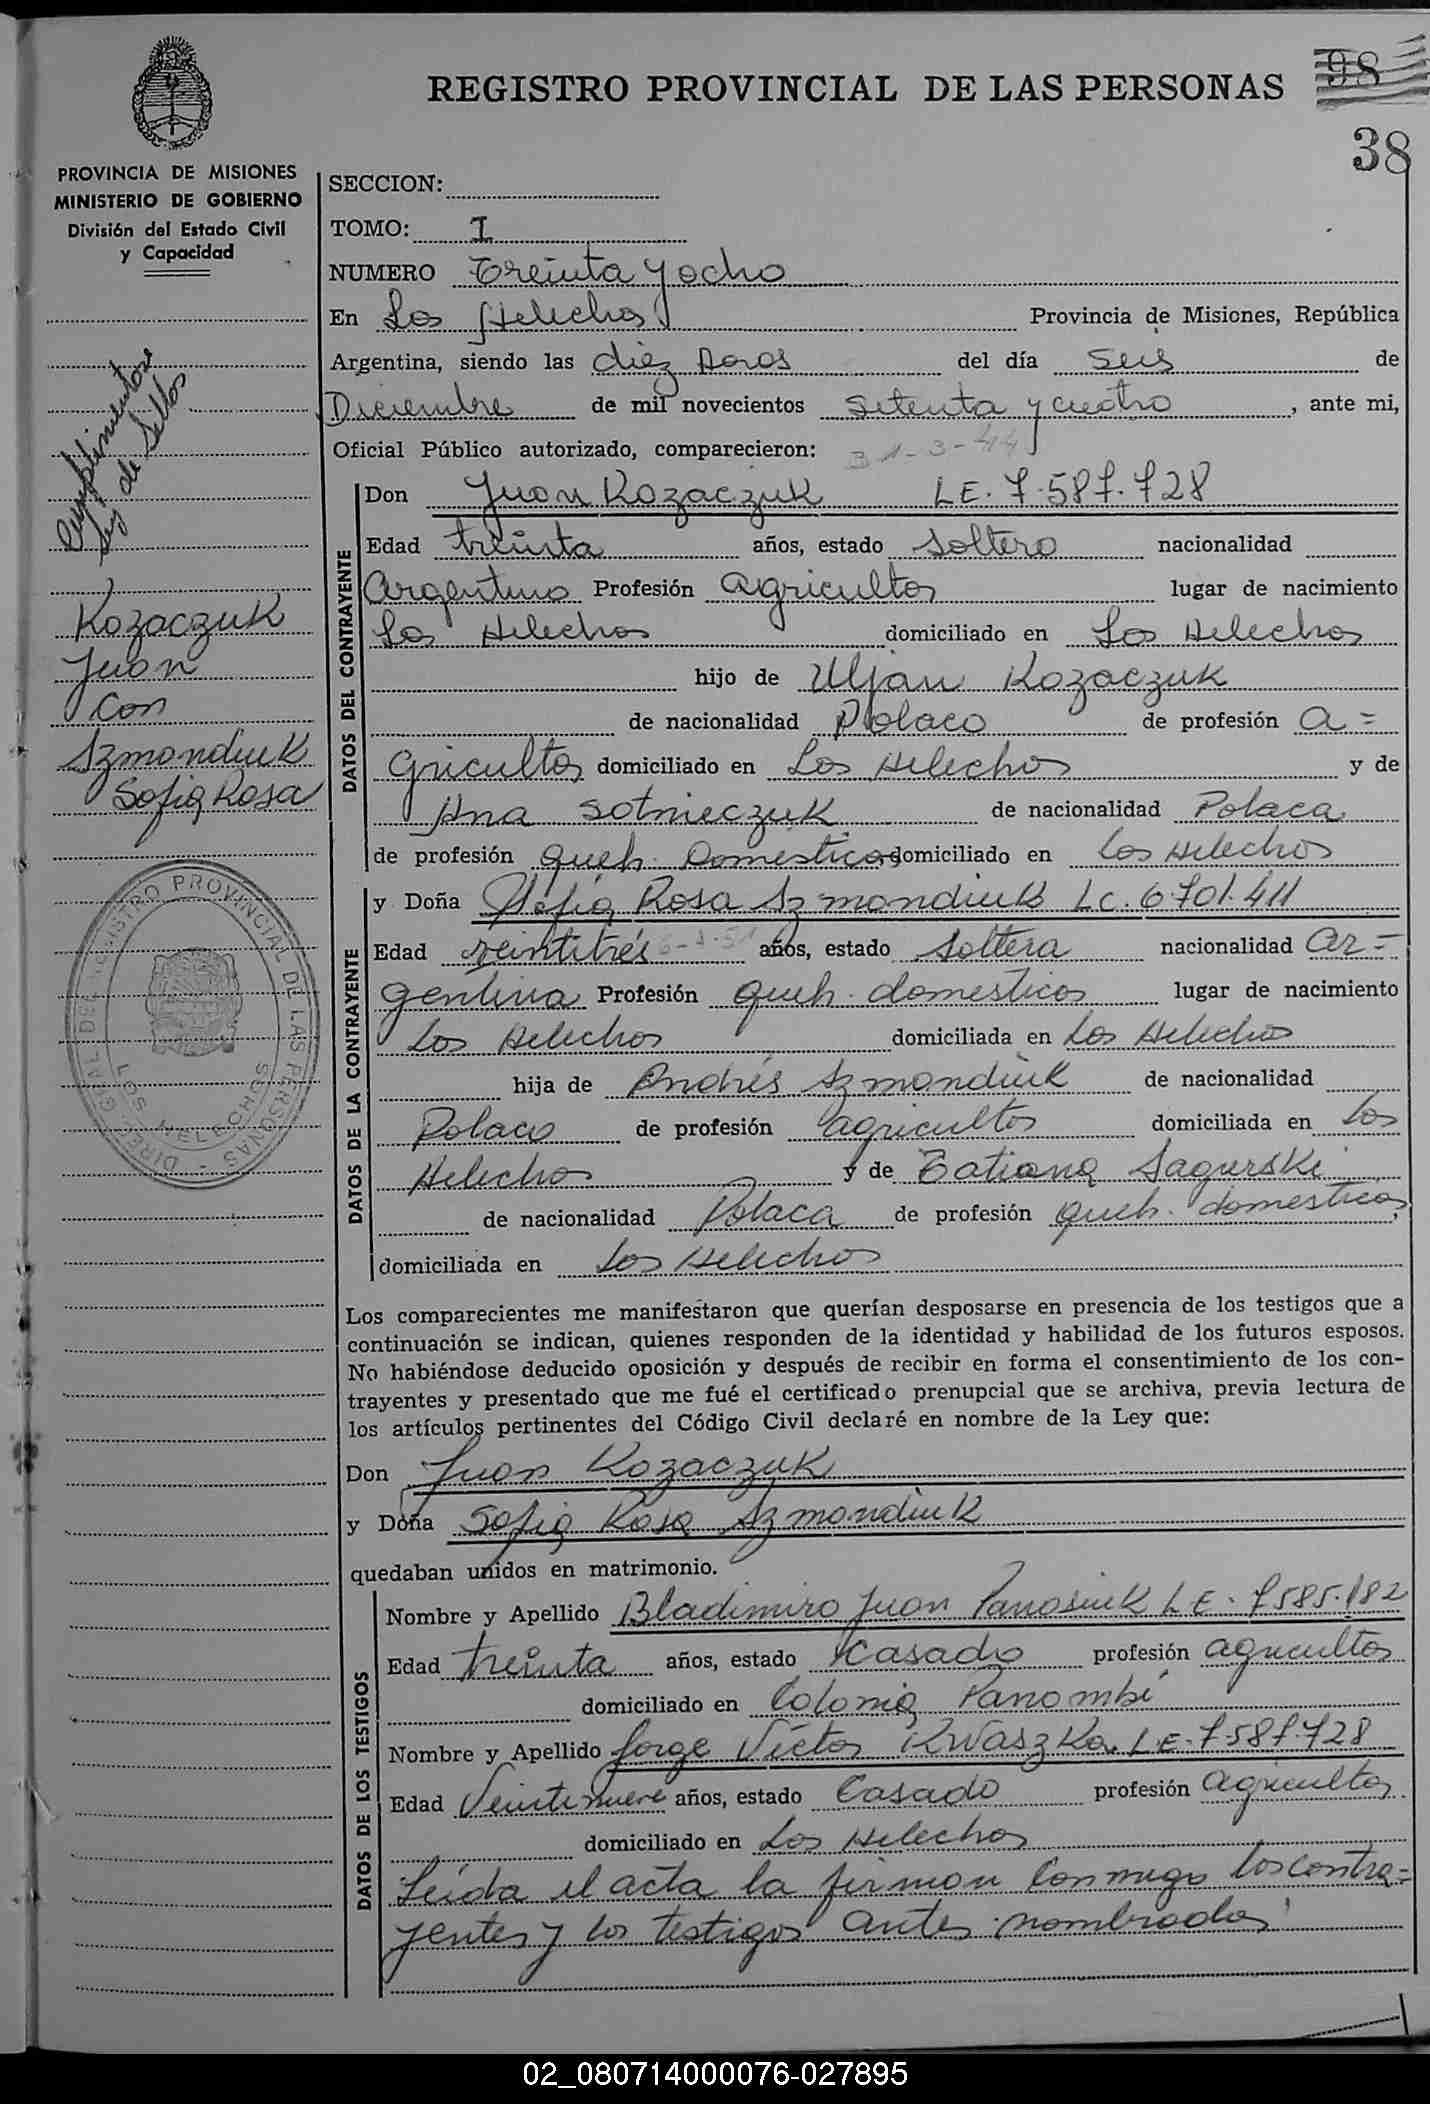 REGISTRO PROVINCIAL DE LAS PERSONAS
98
38
PROVINCIA DE MISIONES
MINISTERIO DE GOBIERNO
División del Estado Civil
y Capacidad
SECCION:
TOMO: I
NUMERO Treinta y ocho
En Los Helechos Provincia de Misiones, República
Argentina, siendo las diez horas del día seis de
Diciembre de mil novecientos setenta y cuatro, ante mi,
Oficial Público autorizado, comparecieron: 31-3-44
DATOS DEL CONTRAYENTE
Don Juan Kozaczuk LE. 7.587.728
Edad treinta años, estado soltero nacionalidad
Argentino Profesión agricultor lugar de nacimiento
Los Helechos domiciliado en Los Helechos
hijo de Uljan Kozaczuk
de nacionalidad Polaco de profesión a=
gricultor domiciliado en Los Helechos y de
Ana Sotnieczuk de nacionalidad Polaca
de profesión queh. Domesticos domiciliado en Los Helechos
DATOS DE LA CONTRAYENTE
y Doña Sofia Rosa Szmondiuk LC. 6.701.411
Edad veintitrés años, estado Soltera nacionalidad ar=
gentina Profesión queh. domesticos lugar de nacimiento
Los Helechos domiciliada en Los Helechos
hija de Andrés Szmondiuk de nacionalidad
Polaco de profesión agricultor domiciliada en Los
Helechos y de Tatiana Sagurski
de nacionalidad Polaca de profesión queh. domesticos,
domiciliada en Los Helechos
Los comparecientes me manifestaron que querían desposarse en presencia de los testigos que a
continuación se indican, quienes responden de la identidad y habilidad de los futuros esposos.
No habiéndose deducido oposición y después de recibir en forma el consentimiento de los con-
trayentes y presentado que me fué el certificado prenupcial que se archiva, previa lectura de
los artículos pertinentes del Código Civil declaré en nombre de la Ley que:
Don Juan Kozaczuk
y Doña Sofia Rosa Szmondiuk
quedaban unidos en matrimonio.
DATOS DE LOS TESTIGOS
Nombre y Apellido Bladimiro Juan Panasiuk LE. 7585.182
Edad treinta años, estado casado profesión agricultor
domiciliado en Colonia Panambí
Nombre y Apellido Jorge Víctor Kwaszka L.E. 7.587.728
Edad Veintinueve años, estado Casado profesión agricultor
domiciliado en Los Helechos
Leída el acta la firman conmigo los contra=
yentes y los testigos antes nombrados
Cumplimientose
Ley de Sellos
Kozaczuk
Juan
Con
Szmondiuk
Sofia Rosa
DIREC. GRAL. DEL REGISTRO PROVINCIAL DE LAS PERSONAS
LOS HELECHOS
02_080714000076-027895